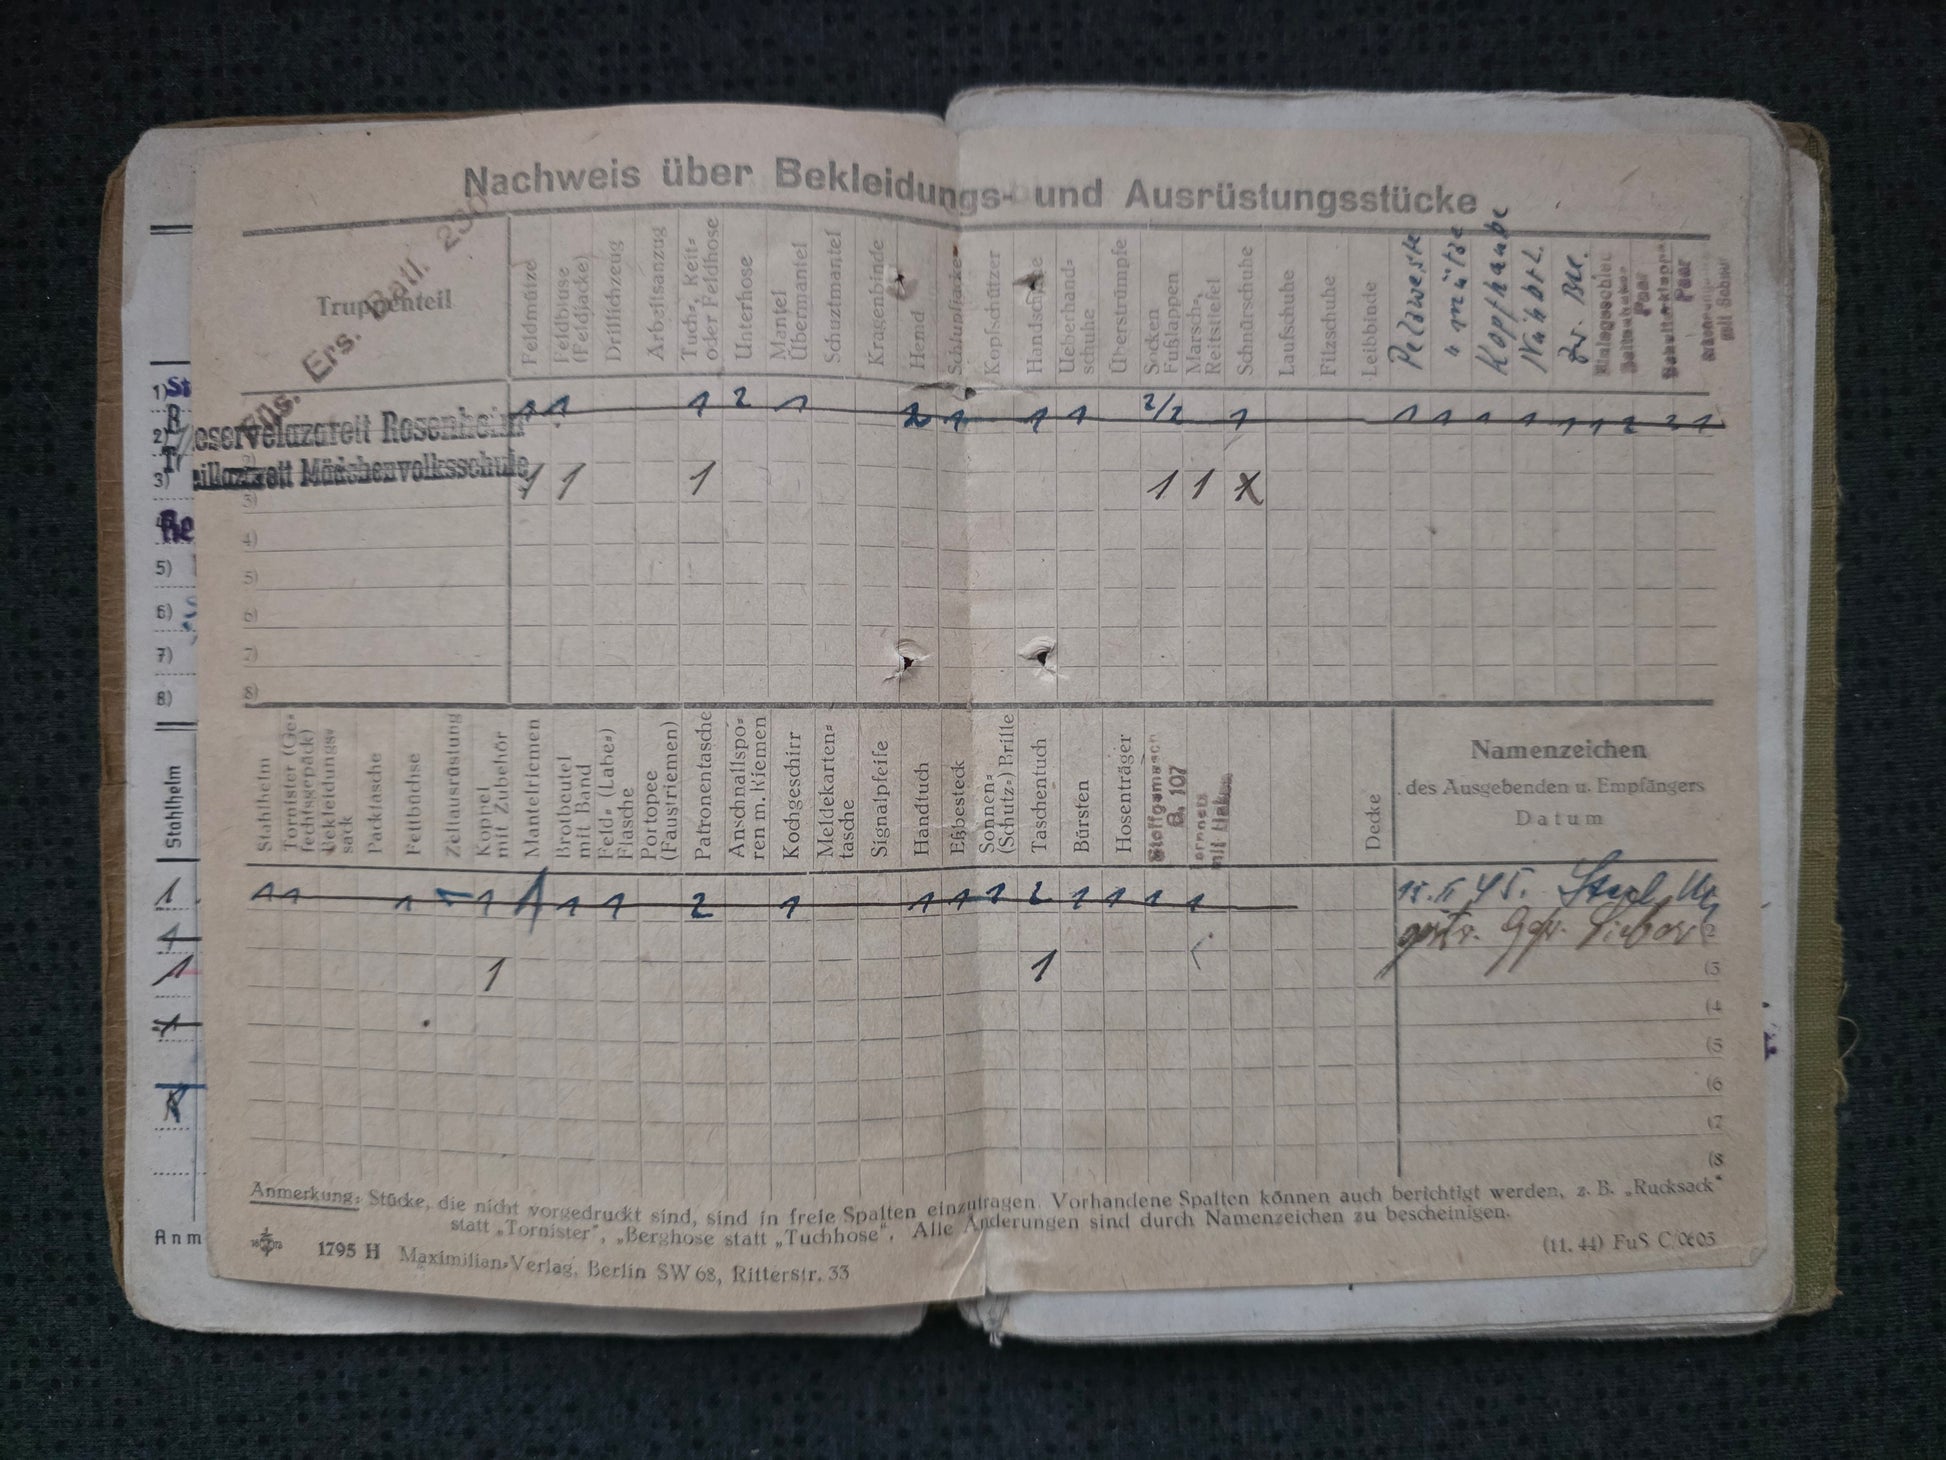 Nachweis über Bekleidungs- und Ausrüstungsstücke
Truppenteil
Ers. Batl. 230
Feldmütze
Feldbluse
(Feldjacke)
Drillichzeug
Arbeitsanzug
Tuch-, Reit-
oder Feldhose
Unterhose
Mantel
Übermantel
Schuztmantel
Kragenbinde
Hemd
Schlupfjacke
Kopfschützer
Handschuhe
Ueberhand-
schuhe
Überstrümpfe
Socken
Fußlappen
Marsch-,
Reitstiefel
Schnürschuhe
Laufschuhe
Filzschuhe
Leibbinde
Pelzweste
" mütze
Kopfhaube
Paar
Paar
1 1 1 2 1 2 1 1 1 2/2 1 1 1 1 1 1 1 2 2 1
Reservelazarett Rosenheim
Teillazarett Mädchenvolksschule
1 1 1 1 1
1)
2)
3)
5)
6)
7)
8)
3)
4)
5)
6)
7)
8)
Stahlhelm
Stahlhelm
Tornister (Ge-
fechtsgepäck)
Bekleidungs-
sack
Packtasche
Fettbüchse
Zeltausrüstung
Koppel
mit Zubehör
Mantelriemen
Brotbeutel
mit Band
Feld- (Labe-)
Flasche
Portopee
(Faustriemen)
Patronentasche
Anschnallspo-
ren m. Riemen
Kochgeschirr
Meldekarten-
tasche
Signalpfeife
Handtuch
Eßbesteck
Sonnen-
(Schutz-) Brille
Taschentuch
Bürsten
Hosenträger
B. 107
Decke
Namenzeichen
des Ausgebenden u. Empfängers
Datum
1 1 1 1 1 1 2 1 1 1 1 2 1 1 1 1
1 1
(2
(3
(4
(5
(6
(7
(8
Anmerkung: Stücke, die nicht vorgedruckt sind, sind in freie Spalten einzutragen. Vorhandene Spalten können auch berichtigt werden, z. B. „Rucksack"
statt „Tornister", „Berghose statt „Tuchhose". Alle Änderungen sind durch Namenzeichen zu bescheinigen.
1795 H Maximilian-Verlag, Berlin SW 68, Ritterstr. 33
(11. 44) FuS C/0605
Anm